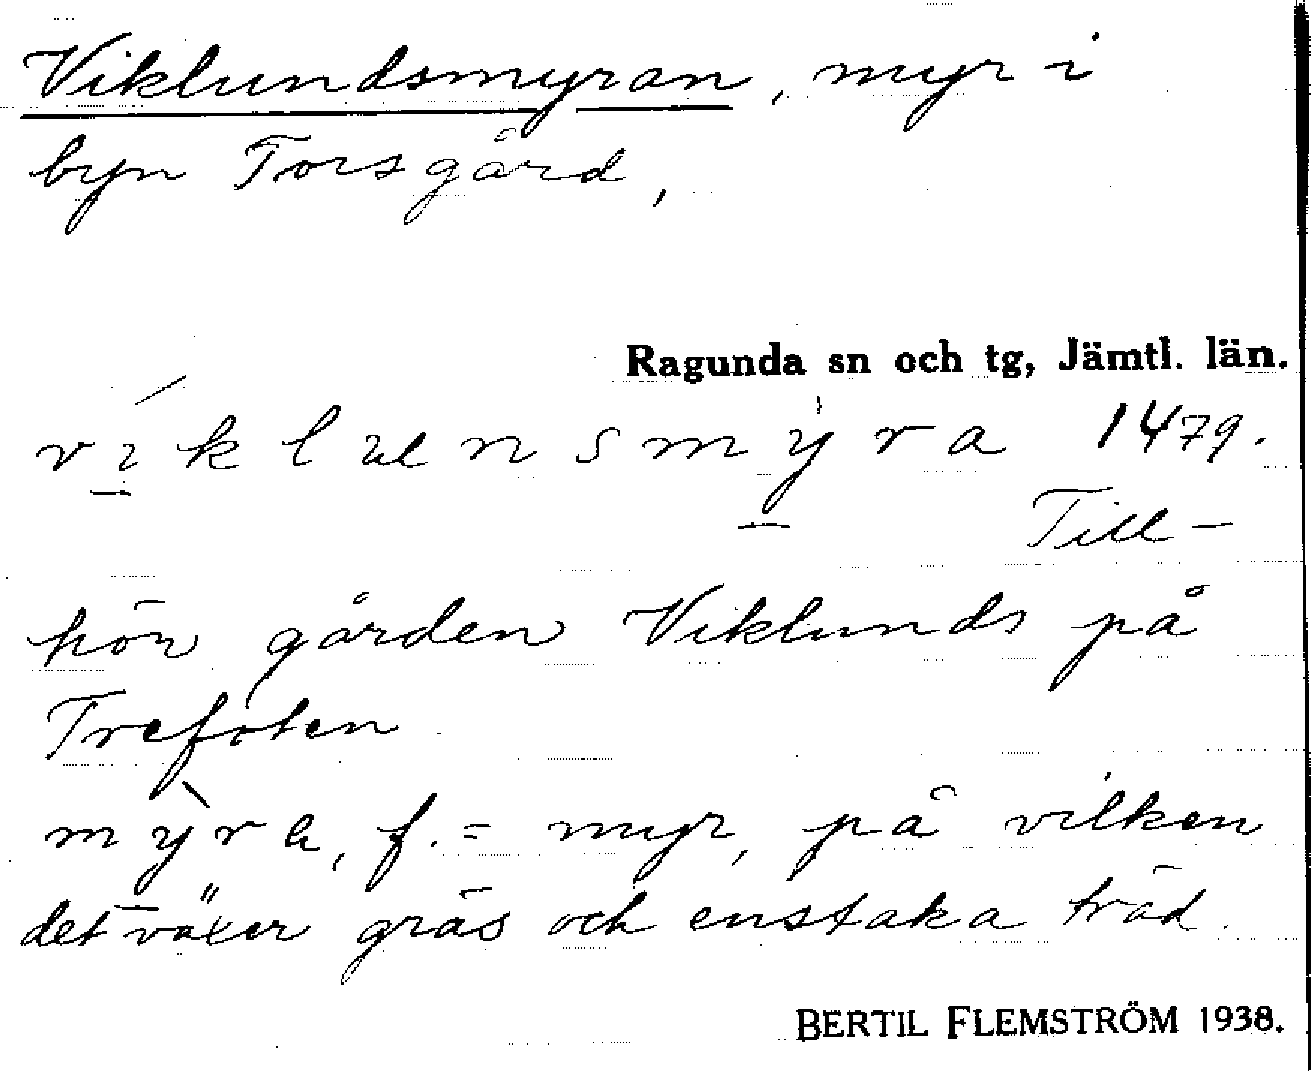 Viklundsmyran, myr i
byn Torsgård,
Ragunda sn och tg, Jämtl. län.
viklunsmyra 1479.
Till-
hör gården Viklunds på
Trefoten
myra, f. = myr, på vilken
det växer gräs och enstaka träd.
BERTIL FLEMSTRÖM 1938.